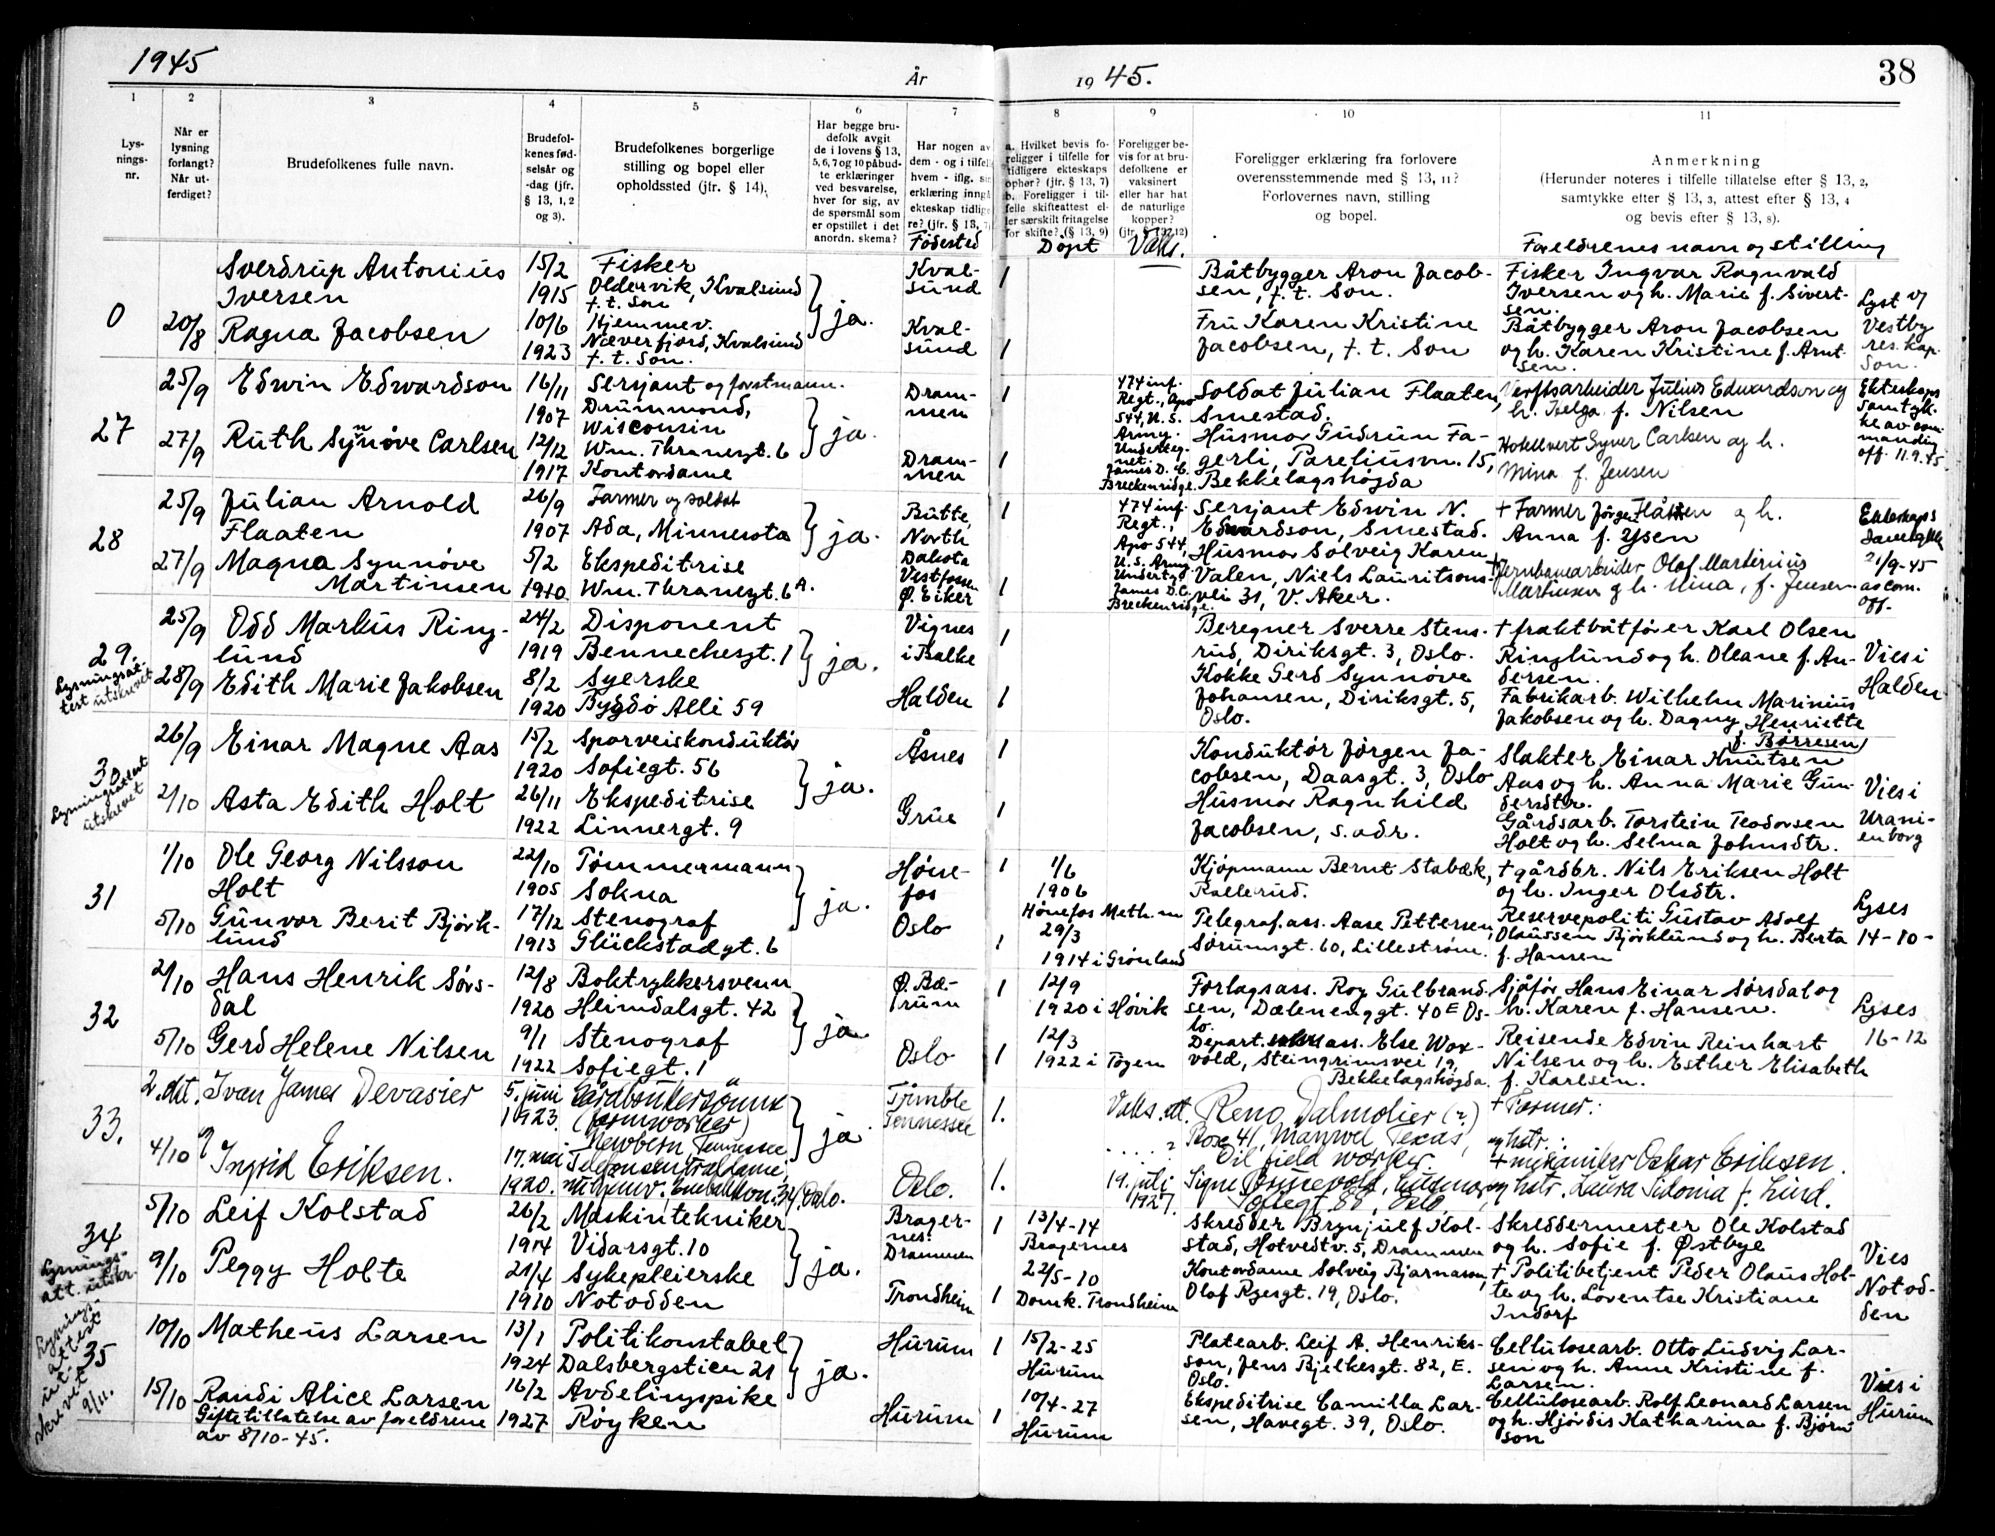 1945
År
1945.
38
1
2
3
4
5
6
7
8
9
10
11
Lys-
nings-
nr.
Når er
lysning
forlangt?
Når ut-
ferdiget?
Brudefolkenes fulle navn.
Brudefol-
kenes fød-
selsår og
-dag (jfr.
§ 13, 1, 2
og 3).
Brudefolkenes borgerlige
stilling og bopel eller
opholdssted (jfr. § 14).
Har begge bru-
defolk avgit
de i lovens § 13,
5, 6, 7 og 10 påbud-
te erklæringer
ved besvarelse,
hver for sig, av
de spørsmål som
er opstillet i det
anordn. skema?
Har nogen av
dem - og i tilfelle
hvem - iflg. sin
erklæring inngå
ekteskap tidlige-
re? (jfr. § 13, 7)
Fødested
a. Hvilket bevis fo-
religger i tilfelle for
tidligere ekteskaps
ophør? (jfr. § 13, 7)
b. Foreligger i til-
felle skifteattest el-
ler særskilt fritagelse
for skifte? (§ 13, 9)
Døpt
Foreligger be-
vis for at bru-
defolkene er
vaksinert
eller har hat
de naturlige
kopper?
Vaks.
Foreligger erklæring fra forlovere
overensstemmende med § 13, 11?
Forlovernes navn, stilling
og bopel.
Anmerkning
(Herunder noteres i tilfelle tillatelse efter § 13, 2,
samtykke efter § 13, 3, attest efter § 13, 4
og bevis efter § 13, 8).
Foreldrenes navn og stilling
0
20/8
Sverdrup Antonius
Iversen
Ragna Jacobsen
15/2
1915
10/6
1923
Fisker
Oldervik, Kvalsund
t. t. Son
Hjemmev.
Næverfjord, Kvalsund
t. t. Son.
ja.
Kval-
sund
Kval-
sund
1
1
Båtbygger Aron Jacob-
sen, t. t. Son.
Fru Karen Kristine
Jacobsen, t. t. Son
Fisker Ingvar Ragnvald
Iversen og h. Marie f. Sivert-
sen.
Båtbygger Aron Jacobsen
og h. Karen Kristine f. Arnt-
sen.
Lyst v/
Vestby
res. kap.
Son.
27
25/9
27/9
Edwin Edwardson
Ruth Synnøve Carlsen
16/11
1907
12/12
1917
Sersjant og forstmann.
Drummond,
Wisconsin
Wm. Thranesgt. 6
Kontordame
ja.
Dram-
men
Dram-
men
1
1
474 inf.
Regt., Apo
544, U. S.
Army.
Underteg-
net:
James D. C.
Breckenridge.
Soldat Julian Flaaten,
Smestad.
Husmor Gudrun Fa-
gerli, Pareliusvn. 15,
Bekkelagshøgda
Verftsarbeider Julius Edwardson og
h. Helga f. Nilsen
Hotellvert Syver Carlsen og h.
Mina f. Jensen
Ekteskaps
samtyk-
ke av com-
manding
off. 11.9.45.
28
25/9
27/9
Julian Arnold
Flaaten
Magna Synnøve
Martinsen
26/9
1907
5/2
1910
Farmer og soldat
Ada, Minnesota
Ekspeditrise
Wm. Thranesgt. 6 A.
ja.
Butte,
North
Dakota
Vestfossen
Ø. Eiker
1
1
474 inf.
Regt.,
Apo 544,
U. S. Army
Undertgn.
James D. C.
Breckenridge.
Sersjant Edwin N.
Edwardson, Smestad.
Husmor Solveig Karen
Valen, Niels Lauritsons-
vei 31, V. Aker.
+ Farmer Jørgen Flåten og h.
Anna f. Ysen
+ Jernbanearbeider Olof Martinius
Martinsen og h. Nina, f. Jensen
Ekteskaps
21/9-45
av com.
off.
29.
Lysningsat-
test utskrevet
25/9
28/9
Odd Markus Ring-
lund
Edith Marie Jakobsen
24/2
1919
8/2
1920
Disponent
Bennechesgt. 1
Syerske
Bygdø Allé 59
ja.
Vignes
i Balke
Halden
1
1
Beregner Sverre Stens-
rud, Diriksgt. 3, Oslo.
Kokke Gerd Synnøve
Johansen, Diriksgt. 5,
Oslo.
+ fraktbåtfører Karl Olsen
Ringlund og h. Oleane f. An-
dersen.
Fabrikarb. Wilhelm Marinius
Jakobsen og h. Dagny Henriette
f. Børresen
Vies i
Halden
30
Lysningsattest
utskrevet
26/9
2/10
Einar Magne Aas
Asta Edith Holt
15/2
1920
26/11
1922
Sporveiskonduktør
Sofiegt. 56
Ekspeditrise
Linnergt. 9
ja.
Åsnes
Grue
1
1
Konduktør Jørgen Ja-
cobsen, Daasgt. 3, Oslo
Husmor Ragnhild
Jacobsen, s. adr.
Slakter Einar Knutsen
Aas og h. Anna Marie Gun-
dersdtr.
Gårdsarb. Torstein Teodorsen
Holt og h. Selma Johnsdtr.
Vies i
Urani-
enborg
31
1/10
5/10
Ole Georg Nilsson
Holt
Gunvor Berit Bjørk-
lund
22/10
1905
17/12
1913
Tømmermann
Sokna
Stenograf
Glückstadgt. 6
ja.
Høne-
fos
Oslo
1
1
1/6
1906
Hønefos Meth. m
29/3
1914 i Grønland
Kjøpmann Bernt Stabæk,
Rallerud.
Telegraf.ass. Aase Pettersen,
Sørumsgt. 60, Lillestrøm.
+ gårdbr. Nils Eriksen Holt
og h. Inger Olsdtr.
Reservepoliti Gustav Adolf
Olaussen Bjørklund og h. Berta
f. Hansen
Lyses
14-10-
32
2/10
5/10
Hans Henrik Sørs-
dal
Gerd Helene Nilsen
12/8
1920
9/1
1922
Boktrykkersvenn
Heimdalsgt. 42
Stenograf
Sofiegt. 1
ja
Ø. Bæ-
rum
Oslo
1
1
12/9
1920 i Høvik
12/3
1922 i Tøyen
Forlagsass. Roy Gulbrand-
sen, Dælenenggt. 40 E Os-
lo.
Depart. ass. Else Wox-
vold, Steingrimsvei 19,
Bekkelagshøgda.
Sjåfør Hans Einar Sørsdal og
h. Karen f. Hansen.
Reisende Edvin Reinhart
Nilsen og h. Esther Elisabeth
f. Karlsen.
Lyses
16-12
33.
2. okt.
4/10
Ivan James Devasier
og
Ingrid Eriksen.
5. juni
1923.
17. mai
1920.
Gårdbrukersønn
(farmworker)
Newbern, Tennessee
Telefonsentraldame,
Oslo.
ja
Trimble
Tennessee
Oslo.
1.
1.
Vaks. att.
19. juli
1927.
Reno Dalmolier (?)
Box 41, Manvel, Texas,
Oil field worker.
Signe Husmor,
Sofiegt 88, Oslo
+ Farmer:
og hstr.:
+ mekaniker Oskar Eriksen.
og hstr. Laura Sidonia f. Lind.
34
Lysnings-
att. utskr.
5/10
9/10
Leif Kolstad
Peggy Holte
26/2
1914
21/4
1910
Maskintekniker
Vidarsgt. 10
Sykepleierske
Notodden
ja.
Brager-
nes.
Drammen
Trondheim
1
1
13/4-14
Bragernes
22/5-10
Domk. Trondheim
Skredder Brynjulf Kol-
stad, Hotvedtv. 5, Drammen
Kontordame Solveig Bjarnason,
Olaf Ryesgt. 19, Oslo.
Skreddermester Ole Kolstad
og h. Sofie f. Østbye
+ Politibetjent Peder Olaus Hol-
te og h. Loventse Kristiane
Indorf
Vies
Notod-
den
35
Lysnings-
attest
ut-
skrevet
9/11.
10/10
15/10
Matheus Larsen
Randi Alice Larsen
Giftetillatelse av foreldrene
av 8/10-45.
13/1
1924
16/2
1927
Politikonstabel
Dalsbergstien 21
Avdelingspike
Røyken
ja.
Hurum
Hurum
1
1
15/2-25
Hurum
10/4-27
Hurum
Platearb. Leif A. Henriks-
son, Jens Bjelkesgt. 82, E.
Oslo.
Ekspeditrise Camilla Lar-
sen, Havegt. 39, Oslo.
Cellulosearb. Otto Ludvig Lar-
sen og h. Anne Kristine f.
Larsen.
Cellulosearb. Rolf Leonard Larsen
og h. Hjørdis Katharina f. Bjørn-
son
Vies i
Hurum